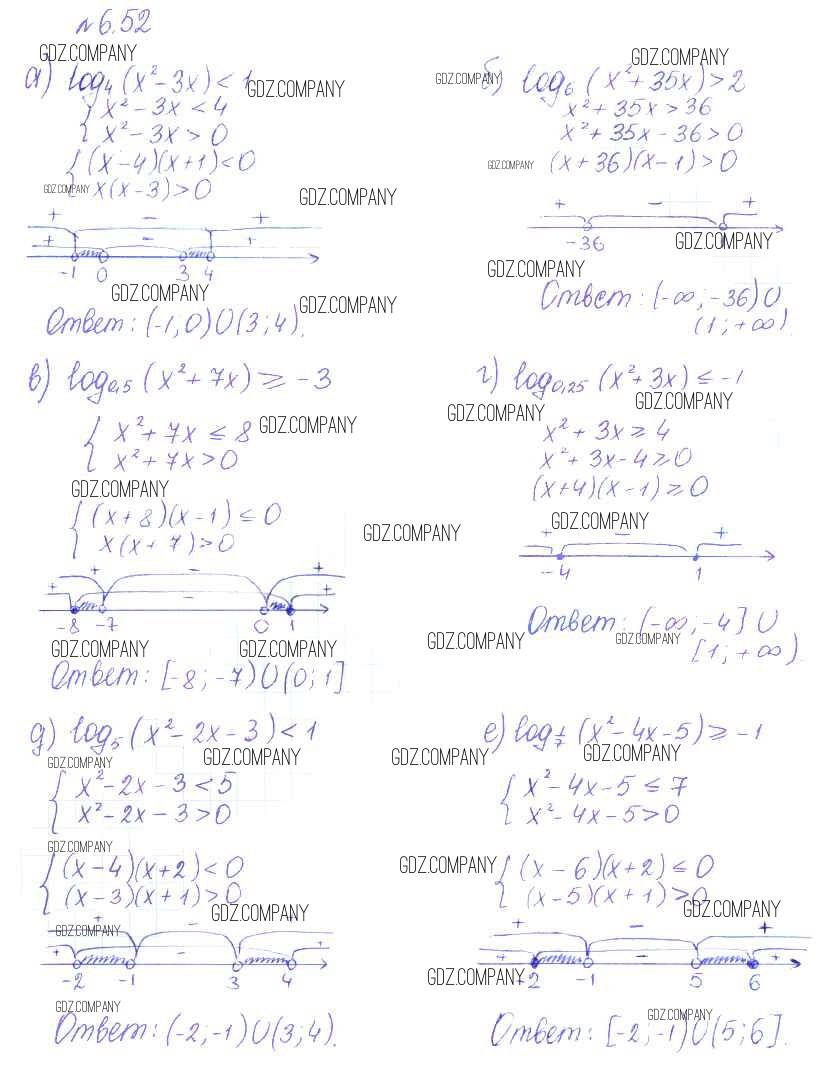 №6.52
GDZ.COMPANY
а) log₄(x² - 3x) < 1
GDZ.COMPANY
{ x² - 3x < 4
{ x² - 3x > 0
{ (x - 4)(x + 1) < 0
GDZ.COMPANY
{ x(x - 3) > 0
GDZ.COMPANY
+ − +
+ − +
-1 0 3 4
GDZ.COMPANY
GDZ.COMPANY
Ответ: (-1, 0) ∪ (3; 4).
GDZ.COMPANY
GDZ.COMPANY
б) log₆(x² + 35x) > 2
x² + 35x > 36
x² + 35x - 36 > 0
GDZ.COMPANY
(x + 36)(x - 1) > 0
+ − +
-36
GDZ.COMPANY
GDZ.COMPANY
Ответ: (-∞; -36) ∪
(1; +∞).
в) log₀,₅(x² + 7x) ≥ -3
{ x² + 7x ≤ 8
GDZ.COMPANY
{ x² + 7x > 0
GDZ.COMPANY
{ (x + 8)(x - 1) ≤ 0
{ x(x + 7) > 0
GDZ.COMPANY
+ − +
+ − +
-8 -7 0 1
GDZ.COMPANY
GDZ.COMPANY
Ответ: [-8; -7) ∪ (0; 1]
г) log₀,₂₅(x² + 3x) ≤ -1
GDZ.COMPANY
GDZ.COMPANY
x² + 3x ≥ 4
x² + 3x - 4 ≥ 0
(x + 4)(x - 1) ≥ 0
GDZ.COMPANY
+ − +
-4 1
Ответ: (-∞; -4] ∪
GDZ.COMPANY
GDZ.COMPANY
[1; +∞).
д) log₅(x² - 2x - 3) < 1
GDZ.COMPANY
GDZ.COMPANY
{ x² - 2x - 3 < 5
{ x² - 2x - 3 > 0
GDZ.COMPANY
{ (x - 4)(x + 2) < 0
{ (x - 3)(x + 1) > 0
GDZ.COMPANY
+ − +
GDZ.COMPANY
+ − +
-2 -1 3 4
GDZ.COMPANY
Ответ: (-2; -1) ∪ (3; 4).
е) log₁/₇(x² - 4x - 5) ≥ -1
GDZ.COMPANY
GDZ.COMPANY
{ x² - 4x - 5 ≤ 7
{ x² - 4x - 5 > 0
GDZ.COMPANY
{ (x - 6)(x + 2) ≤ 0
{ (x - 5)(x + 1) > 0
GDZ.COMPANY
+ − +
+ − +
GDZ.COMPANY
-2 -1 5 6
GDZ.COMPANY
Ответ: [-2; -1) ∪ (5; 6].